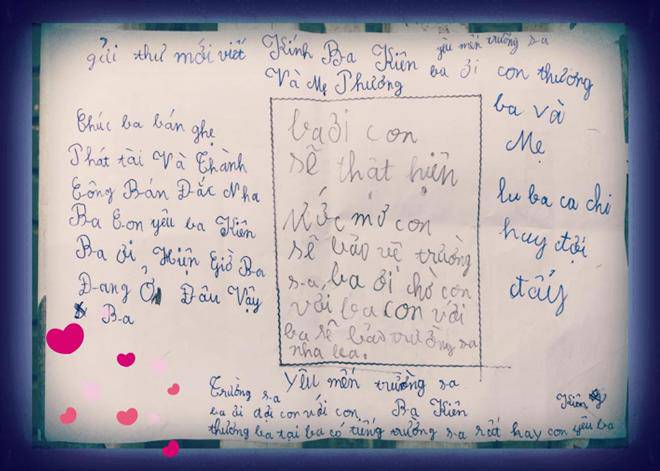 gửi thư mới viết
Kính Ba Kiên
Và Mẹ Phương
yêu mến trường sa
ba ơi con thương
ba và
Mẹ
lu ba ca chi
huy đợi
đấy
Chúc ba bán ghẹ
Phát tài Và Thành
Công Bán Đắc Nha
Ba Con yêu ba Kiên
Ba ơi Hiện Giờ Ba
Đang Ở Đâu Vậy
Ba
ba ơi con
sẽ thật hiện
Ước mơ con
sẽ bảo vệ trường
sa, ba ơi chờ con
với ba con với
ba sẽ bảo trường sa
nha ba.
Trường sa
Yêu mến trường sa
ba ơi đợi con với con
Ba Kiên
Kiên
thương ba tại ba có tiếng trường sa rất hay con yêu ba